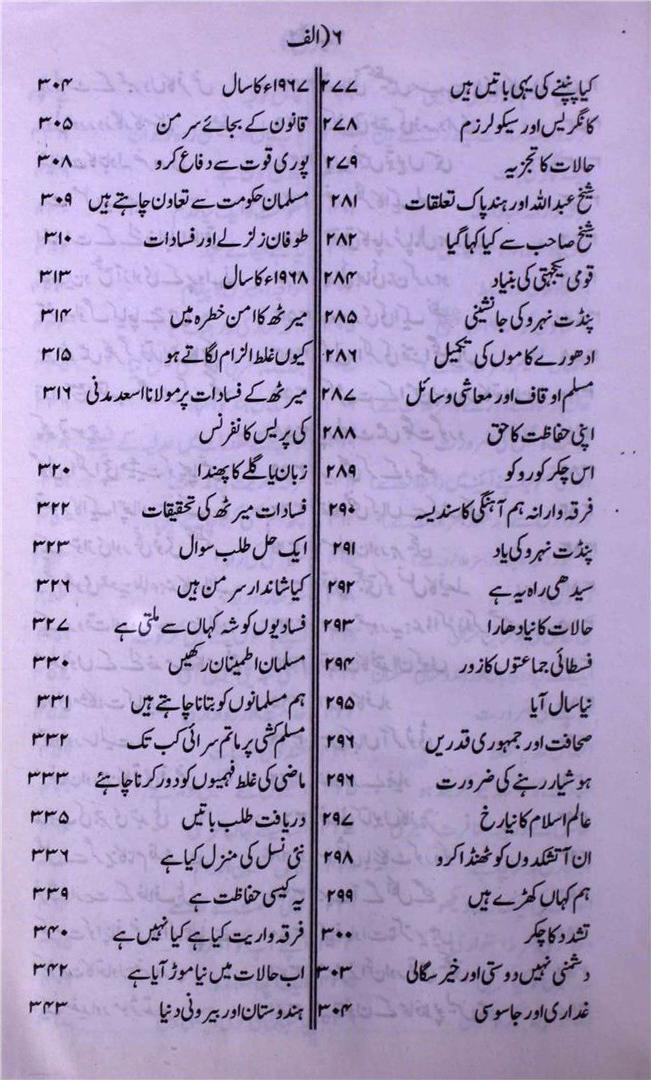 ۶ (الف
کیا پنپنے کی یہی باتیں ہیں ۲۷۷
کانگریس اور سیکولرزم ۲۷۸
حالات کا تجزیہ ۲۷۹
شیخ عبداللہ اور ہند پاک تعلقات ۲۸۱
شیخ صاحب سے کیا کہا گیا ۲۸۲
قومی یکجہتی کی بنیاد ۲۸۴
پنڈت نہرو کی جانشینی ۲۸۵
ادھورے کاموں کی تکمیل ۲۸۶
مسلم اوقاف اور معاشی وسائل ۲۸۷
اپنی حفاظت کا حق ۲۸۸
اس چکر کو روکو ۲۸۹
فرقہ وارانہ ہم آہنگی کا سندیسہ ۲۹۰
پنڈت نہرو کی یاد ۲۹۱
سیدھی راہ یہ ہے ۲۹۲
حالات کا نیا دھارا ۲۹۳
فسطائی جماعتوں کا زور ۲۹۴
نیا سال آیا ۲۹۵
صحافت اور جمہوری قدریں ۲۹۶
ہوشیار رہنے کی ضرورت ۲۹۶
عالم اسلام کا نیا رخ ۲۹۷
ان آتشکدوں کو ٹھنڈا کرو ۲۹۸
ہم کہاں کھڑے ہیں ۲۹۹
تشدد کا چکر ۳۰۰
دشمنی نہیں دوستی اور خیر سگالی ۳۰۳
غداری اور جاسوسی ۳۰۴
۱۹۶۷ء کا سال ۳۰۴
قانون کے بجائے سرمن ۳۰۵
پوری قوت سے دفاع کرو ۳۰۸
مسلمان حکومت سے تعاون چاہتے ہیں ۳۰۹
طوفان زلزلے اور فسادات ۳۱۰
۱۹۶۸ء کا سال ۳۱۳
میرٹھ کا امن خطرہ میں ۳۱۴
کیوں غلط الزام لگاتے ہو ۳۱۵
میرٹھ کے فسادات پر مولانا اسعد مدنی ۳۱۶
کی پریس کانفرنس
زبان یا گلے کا پھندا ۳۲۰
فسادات میرٹھ کی تحقیقات ۳۲۲
ایک حل طلب سوال ۳۲۳
کیا شاندار سرمن ہیں ۳۲۶
فسادیوں کو شہ کہاں سے ملتی ہے ۳۲۷
مسلمان اطمینان رکھیں ۳۳۰
ہم مسلمانوں کو بتانا چاہتے ہیں ۳۳۱
مسلم کشی پر ماتم سرائی کب تک ۳۳۲
ماضی کی غلط فہمیوں کو دور کرنا چاہئے ۳۳۳
دریافت طلب باتیں ۳۳۵
نئی نسل کی منزل کیا ہے ۳۳۶
یہ کیسی حفاظت ہے ۳۳۹
فرقہ واریت کیا ہے کیا نہیں ہے ۳۴۰
اب حالات میں نیا موڑ آیا ہے ۳۴۲
ہندوستان اور بیرونی دنیا ۳۴۳